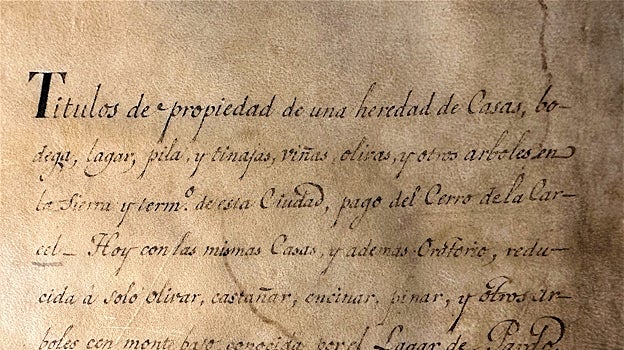 Titulos de propiedad de una heredad de Casas, bo-
dega, lagar, pila, y tinajas, viñas, olivas, y otros arboles en
la Sierra y termº. de esta Ciudad, pago del Cerro de la Car-
cel_ Hoy con las mismas Casas, y ademas Oratorio, redu-
cida à solo olivar, castañar, encinar, pinar, y otros ar-
boles con monte bajo conocida por el Lagar de Pardo